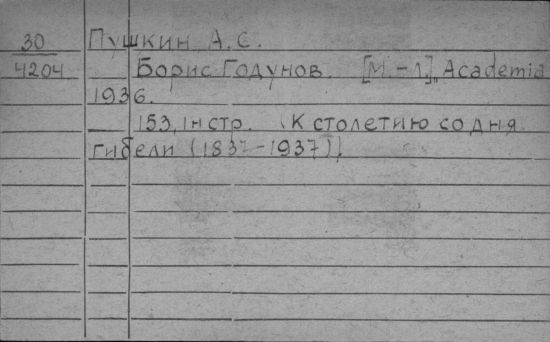 30 Пушкин А.С.
4204 Борис Годунов. [М.-Л.] „Academia
1936.
153, 1н стр. (К столетию со дня
гибели (1837-1937)).